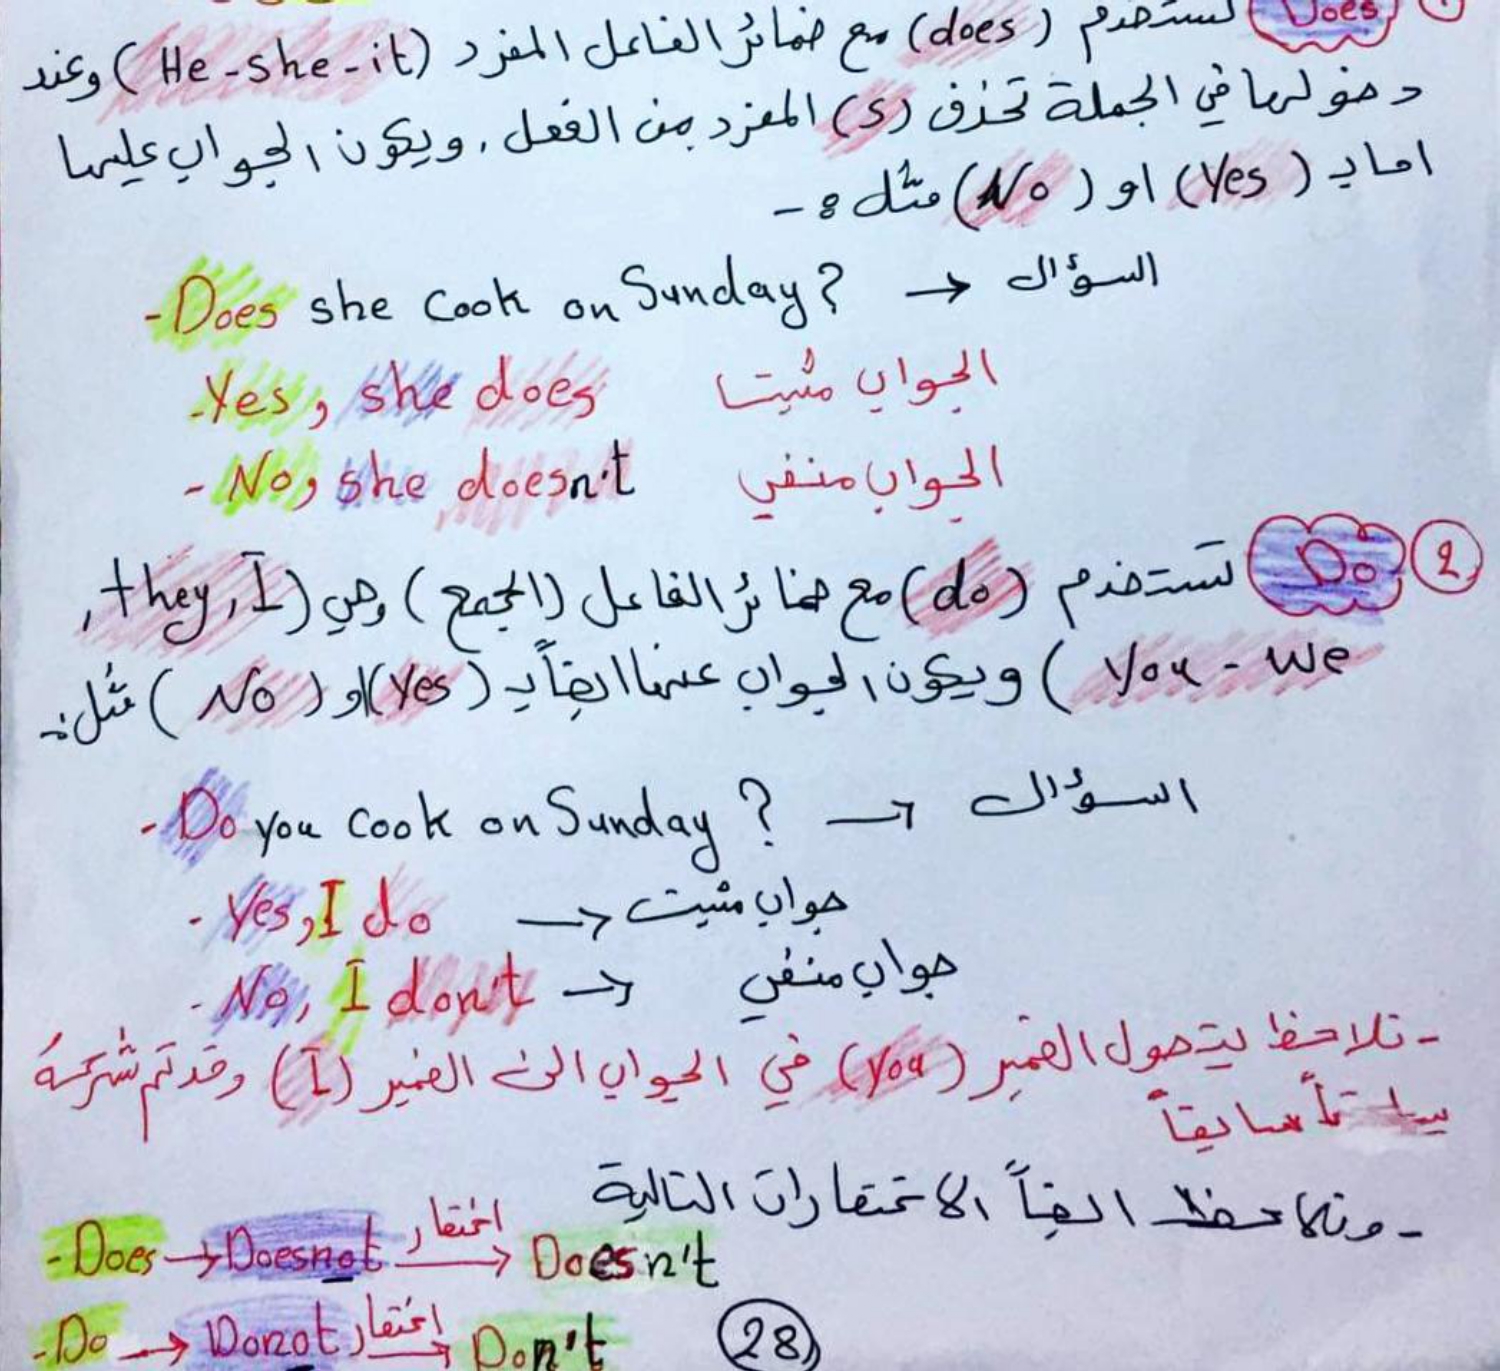 ① Does تستخدم (does) مع ضمائر الفاعل المفرد (He-she-it) وعند
دخولها في الجملة تحذف (s) المفرد من الفعل، ويكون الجواب عليها
اما بـ (Yes) او (No) مثل :-
-Does she cook on Sunday? → السؤال
-Yes, she does الجواب مثبتا
- No, she doesn't الجواب منفي
② Do تستخدم (do) مع ضمائر الفاعل (الجمع) وهي (I, they,
you - we) ويكون الجواب عنها ايضاً بـ (Yes) او (No) مثل :-
- Do you cook on Sunday? → السؤال
- Yes, I do → جواب مثبت
- No, I don't → جواب منفي
- نلاحظ يتحول الضمير (you) في الجواب الى الضمير (I) وقد تم شرحهُ
سابقاً
- ونلاحظ ايضاً الاختصارات التالية
-Does → Doesnot اختصار → Doesn't
-Do → Donot اختصار → Don't
28